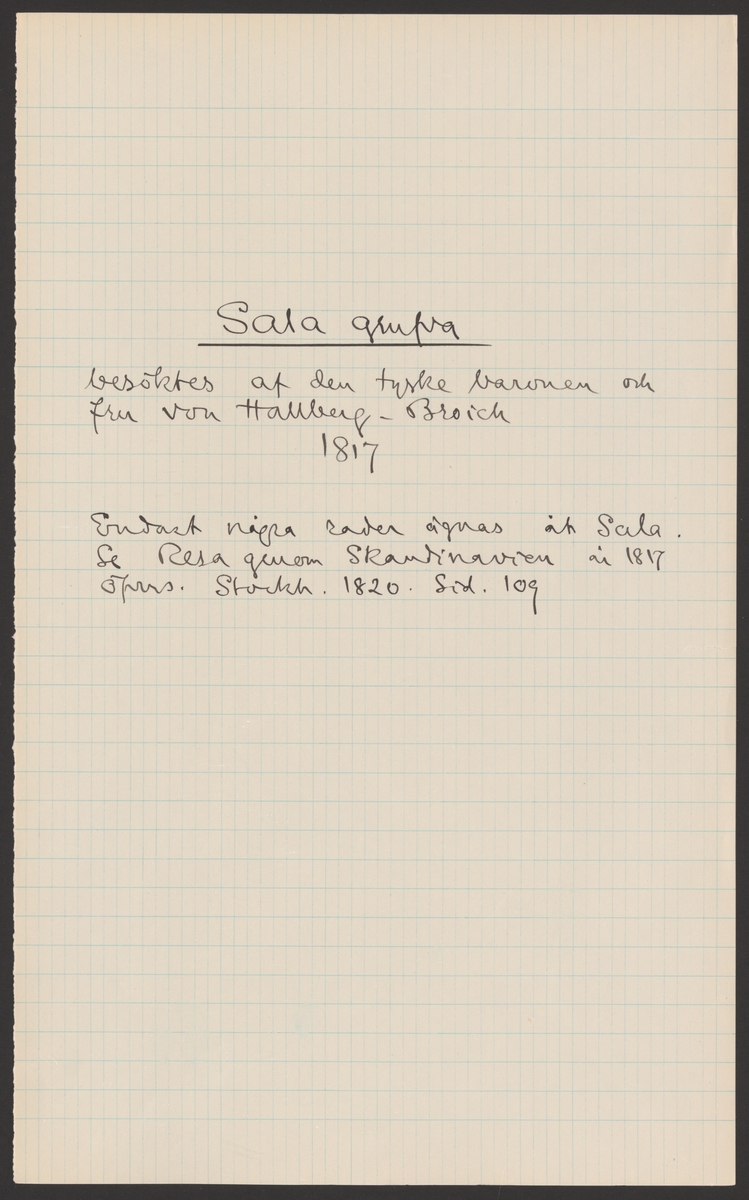 Sala grufva
besöktes af den tyske baronen och
fru von Hallberg-Broich
1817
Endast några rader ägnas åt Sala.
Se Resa genom Skandinavien år 1817
öfvers. Stockh. 1820. Sid. 109